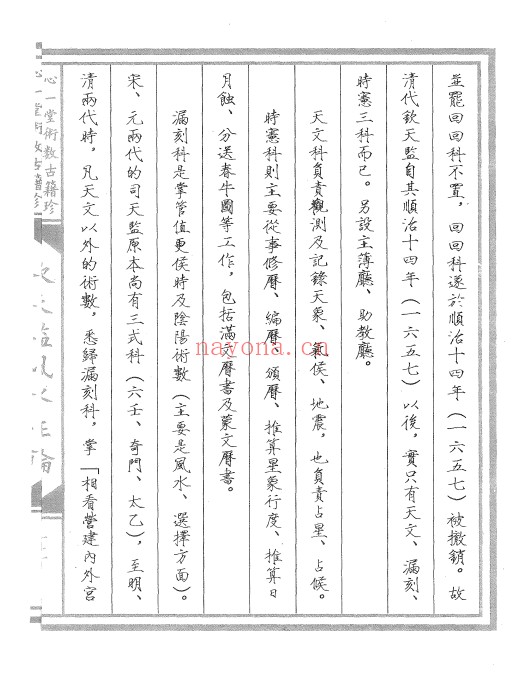 並罷回回科不置，回回科遂於順治十四年（一六五七）被撤銷。故
清代欽天監自其順治十四年（一六五七）以後，實只有天文、漏刻、
時憲三科而已。另設主薄廳、助教廳。
天文科負責觀測及記錄天象、氣侯、地震，也負責占星、占候。
時憲科則主要從事修曆、編曆、頒曆、推算星象行度、推算日
月蝕、分送春牛圖等工作，包括滿文曆書及蒙文曆書。
漏刻科是掌管值更侯時及陰陽術數（主要是風水、選擇方面）。
宋、元兩代的司天監原本尚有三式科（六壬、奇門、太乙），至明、
清兩代時，凡天文以外的術數，悉歸漏刻科，掌「相看營建內外宮
心一堂術數古籍珍
心一堂術數古籍珍
nayona.cn